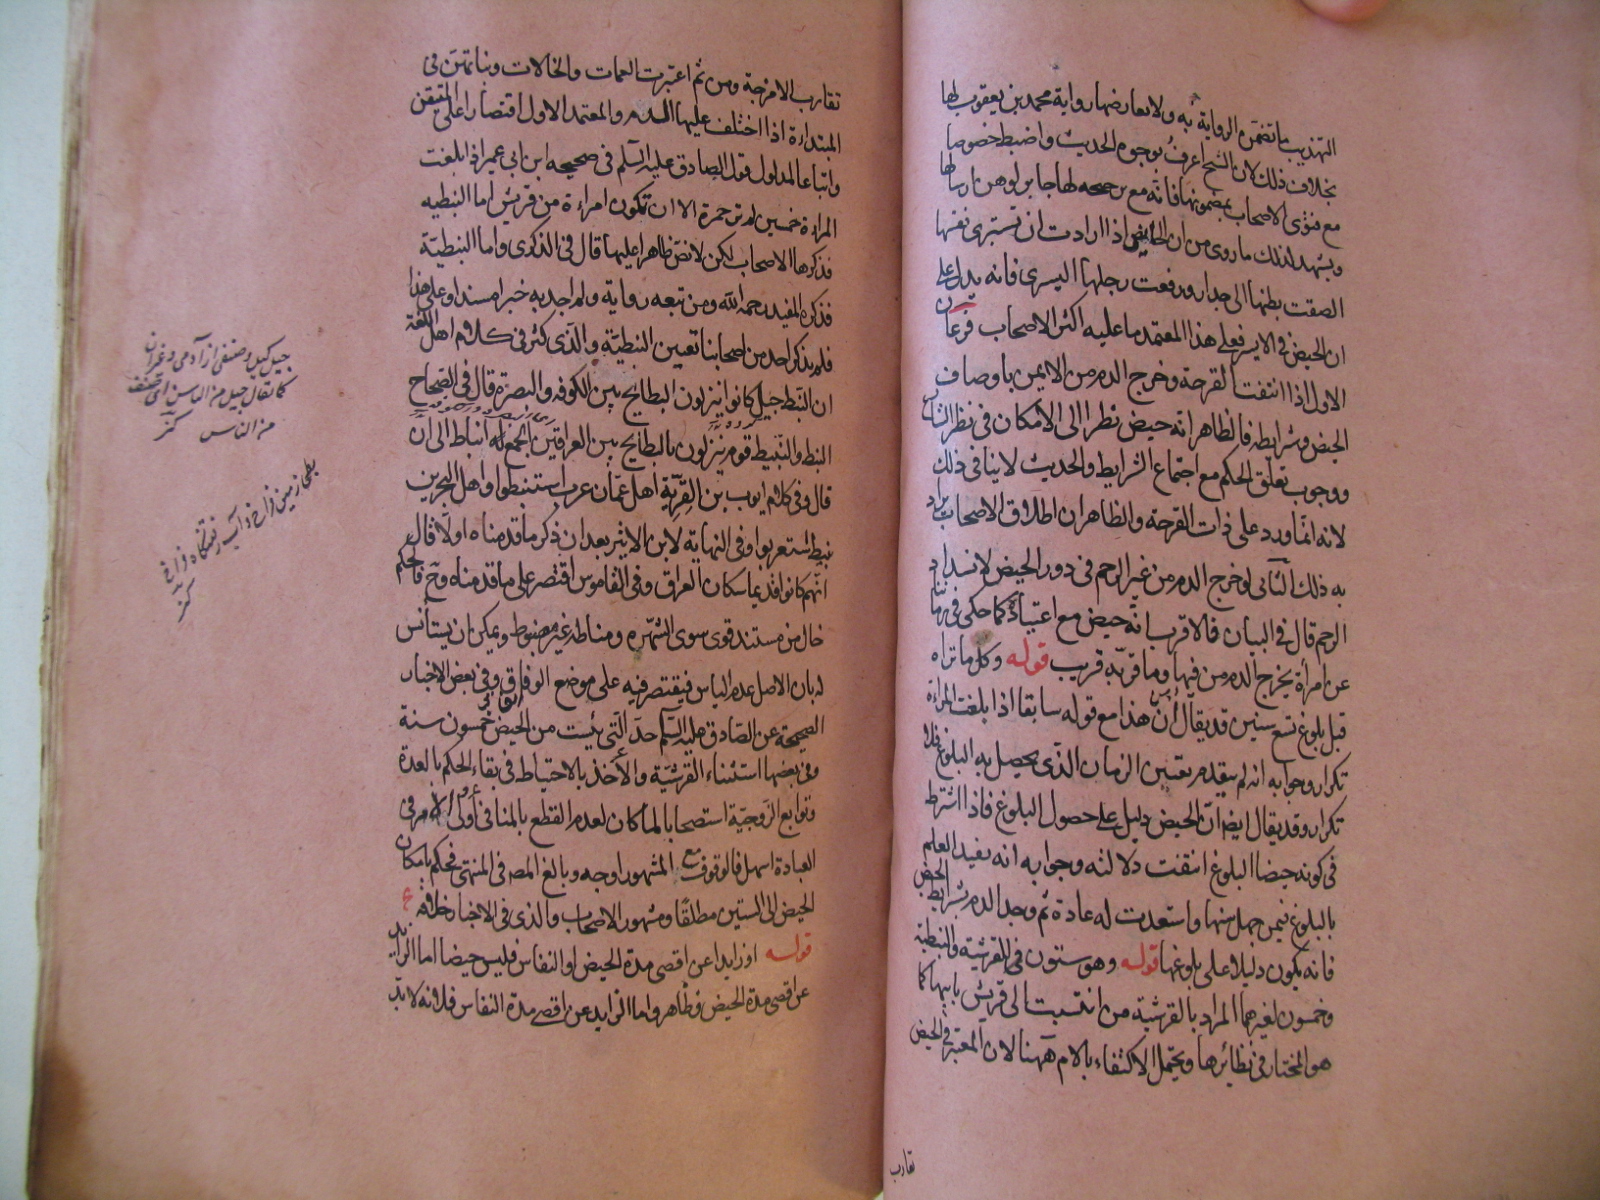 التهذيب ما تضمنه الرواية به ولا يعارضها رواية محمد بن يعقوب لها
بخلاف ذلك لان الشيخ اعرف بوجوه الحديث واضبط خصوصا
مع فتوى الاصحاب بمضمونها فانه مع رجحه لها جابر لوهن ارسالها
ويشهد لذلك ما روى من ان الحايض اذا ارادت ان تستبرى نفسها
الصقت بطنها الى جدار ورفعت رجلها اليسرى فانه يدل على
ان الحيض في الايسر فعلى هذا المعتمد ما عليه اكثر الاصحاب فرعان
الاول اذا انتفت القرحة وخرج الدم من الايمن باوصاف
الحيض وشرايطه فالظاهر انه حيض نظرا الى الامكان في نظر الشارع
ووجوب تعلق الحكم مع اجتماع الشرايط والحديث لا ينافي ذلك
لانه انما ورد على ذات القرحة والظاهر ان اطلاق الاصحاب يراد
به ذلك الثاني لو خرج الدم من غير الرحم في دور الحيض لانسداد
الرحم قال في البيان فالاقرب انه حيض مع اعتياده كما حكى في زماننا
عن امرأة يخرج الدم من فيها وما قربه قريب قوله وكل ما تراه
قبل بلوغ تسع سنين قد يقال ان هذا مع قوله سابقا اذا بلغت المراة
تكرار وجوابه انه لم يتقدم تعيين الزمان الذى يحصل به البلوغ فلا
تكرار وقد يقال ايضا ان الحيض دليل على حصول البلوغ فاذا اشترط
في كونه حيضا البلوغ انتفت دلالته وجوابه انه يفيد العلم
بالبلوغ فيمن جهل سنها واستعدت له عادة ثم وجد الدم بشرايط الحيض
فانه يكون دليلا على بلوغها قوله وهو ستون في القرشية والنبطية
وخمسون لغيرهما المراد بالقرشية من انتسبت الى قريش بابيها كما
هو المختار في نظائرها ويحتمل الاكتفاء بالام ههنا لان المعتبر في الحيض
تقارب
تقارب الامزجة ومن ثم اعتبرت العمات والخالات وبناتهن في
المبتداءة اذا اختلف عليها الدم والمعتمد الاول اقتصارا على المتيقن
واتباعا لمدلول قول الصادق عليه السلم في صحيحه ابن ابي عمير اذا بلغت
المراءة خمسين لم تر حمرة الا ان تكون امراءة من قريش اما النبطيه
فذكرها الاصحاب لكن لا نص ظاهرا عليها قال في الذكرى واما النبطيّة
فذكره المفيد رحمه الله ومن تبعه رواية ولم اجد به خبرا مسندا وعلى هذا
فلم يذكر احد من اصحابنا تعيين النبطية والذى كثر في كلام اهل اللغة
ان النبط جيل كانوا ينزلون البطايح بين الكوفه والبصرة قال في الصحاح
النبط والنبيط قوم ينزلون بالبطايح بين العراقين الجمع له انباط الى ان
قال وفي كلام ايوب بن القرية اهل عمان عرب استنبطوا واهل البحرين
نبيط استعربوا وفى النهاية لابن الاثير بعد ان ذكر ما قدمناه اولا قال
انهم كانوا قديما سكان العراق وفى القاموس اقتصر على ما قدمناه وح فالحكم
خال من مستند قوى سوى الشهره ومناطه غير مضبوط ويمكن ان يستأنس
له بان الاصل عدم الياس فيقتصر فيه على موضع الوفاق وفي بعض الاخبار
الصحيحة عن الصادق عليه السلم حد التي يئست من الحيض خمسون سنة
وفى بعضها استثناء القرشية والأخذ بالاحتياط في بقاء الحكم بالعدة
وتوابع الزوجية استصحابا لما كان لعدم القطع بالمنافى اولى والامر في
العبادة اسهل فالوقوف مع المشهور اوجه وبالغ المصه في المنتهى فحكم بامكان
الحيض الى الستين مطلقا ومشهور الاصحاب والذى في الاخبار خلافه
قوله او زايدا عن اقصى مدة الحيض او النفاس فليس حيضا اما الزايد
عن اقصى مدة الحيض فظاهر واما الزايد عن اقصى مدة النفاس فلانه لابد
جيل كيل وصنفى از آدمى وغير ان
كما يقال جيل من الناس اى صنف
من الناس كنز